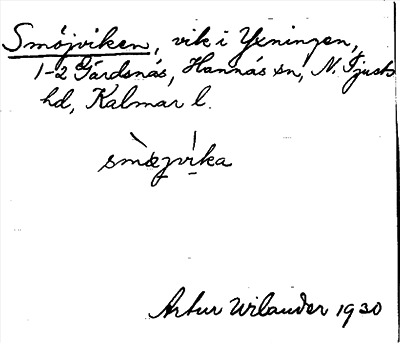 Smöjviken, vik i Yxningen,
1-2 Gärdsnäs, Hannäs sn, N. Tjusts
hd, Kalmar l.
smæjvika
Artur Wilander 1930